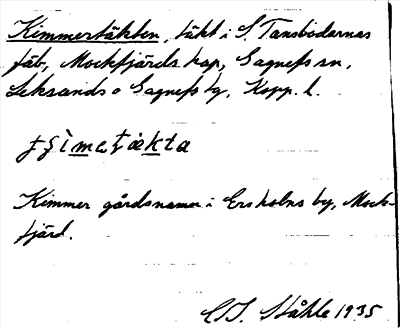 Kimmertäkten, täkt i S. Tansbodarnas
fäb, Mockfjärds kap, Gagnefs sn,
Leksands o Gagnefs tg, Kopp. l.
Kimmer gårdsnamn i Ersholns by, Mock-
fjärd.
C. I. Ståhle 1935